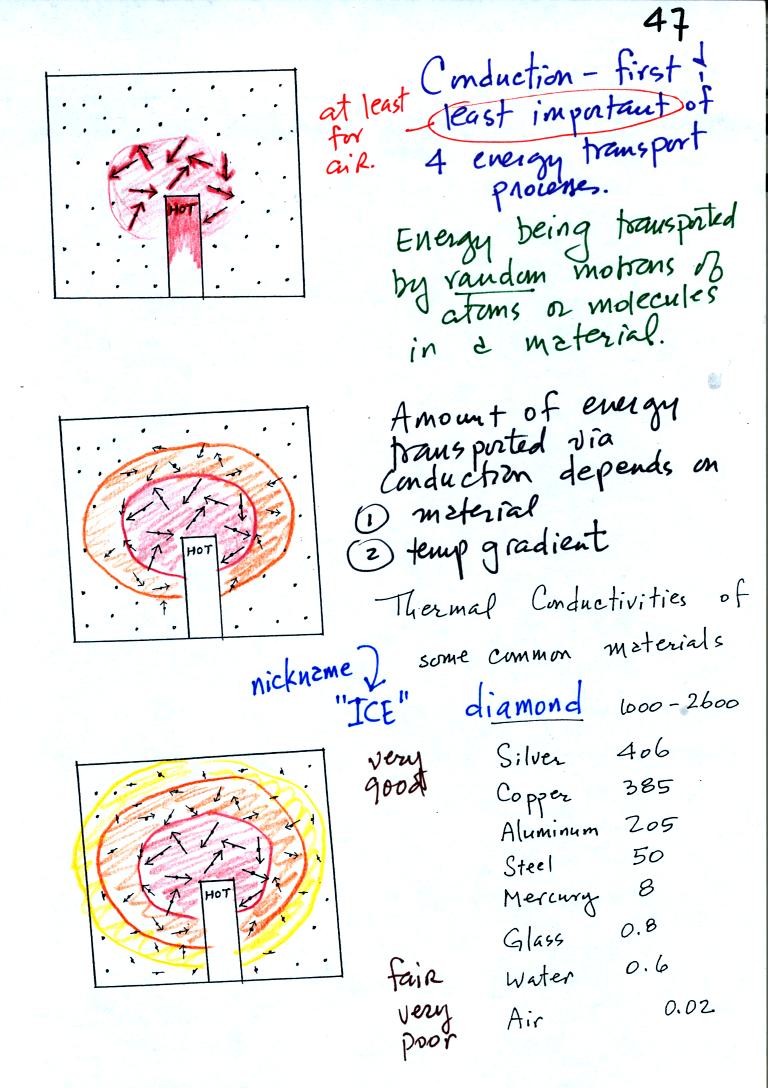 47
Conduction - first &
least important of
4 energy transport
processes.
at least
for
air.
HOT
Energy being transported
by random motions of
atoms or molecules
in a material.
Amount of energy
transported via
conduction depends on
① material
② temp gradient
HOT
Thermal Conductivities of
some common materials
nickname
"ICE" diamond 1000-2600
very
good
Silver 406
Copper 385
Aluminum 205
Steel 50
Mercury 8
Glass 0.8
fair Water 0.6
very
poor
Air 0.02
HOT